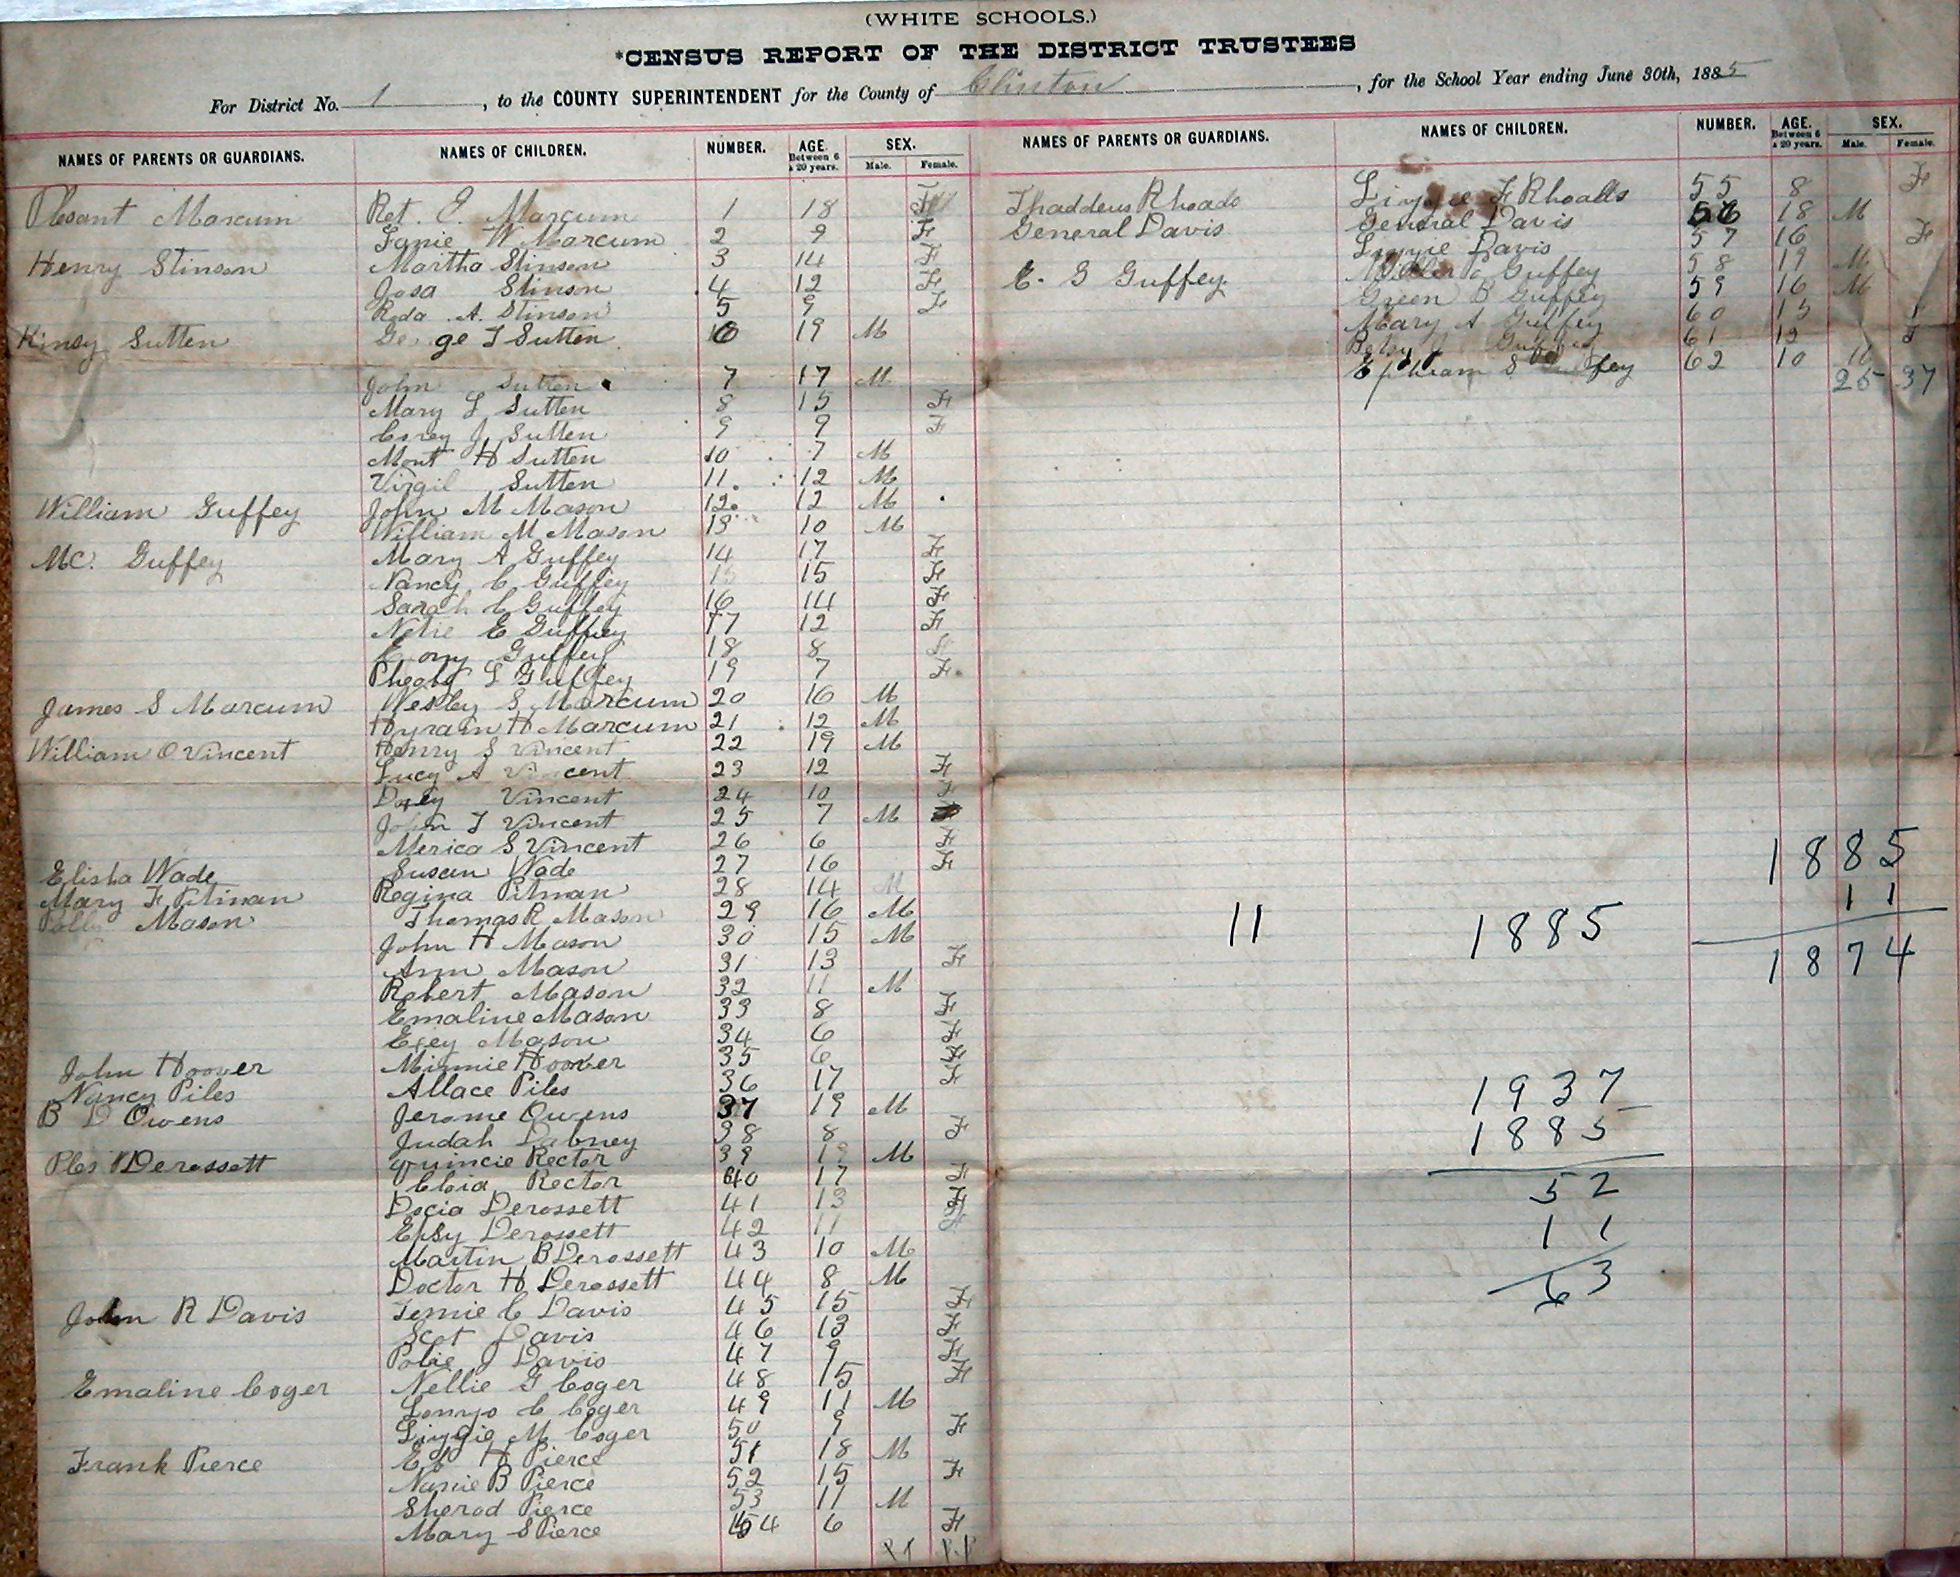 (WHITE SCHOOLS.)
*CENSUS REPORT OF THE DISTRICT TRUSTEES
For District No. 1, to the COUNTY SUPERINTENDENT for the County of Clinton, for the School Year ending June 30th, 1885
NAMES OF PARENTS OR GUARDIANS. NAMES OF CHILDREN. NUMBER. AGE. Between 6 & 20 years. SEX. Male. Female.
Plesant Marcum Ret. E. Marcum 1 18 F
Fanie W Marcum 2 9 F
Henry Stinson Martha Stinson 3 14 F
Josa Stinson 4 12 F
Roda A. Stinson 5 9 F
Kinsy Sutten George T Sutten 6 19 M
John Sutten 7 17 M
Mary L Sutten 8 15 F
Corey J Sutten 9 9 F
Mont H Sutten 10 7 M
Virgil Sutten 11. 12 M
William Guffey John M Mason 12. 12 M
William M Mason 13 10 M
Mc. Guffey Mary A Guffey 14 17 F
Nancy C Guffey 15 15 F
Sarah C Guffey 16 14 F
Netie E Guffey 17 12 F
Guffey 18 8
L Guffey 19 7 F.
James S Marcum Wesley S Marcum 20 16 M
Hyram H Marcum 21 12 M
William O Vincent Henry S Vincent 22 19 M
Lucy A Vincent 23 12 F
Vincent 24 10 F
John T Vincent 25 7 M
Merica S Vincent 26 6 F
Elisha Wade Susan Wade 27 16 F
Mary F Pitman Regina Pitman 28 14 M
Mason Thomas R Mason 29 16 M
John H Mason 30 15 M
Ann Mason 31 13 F
Robert Mason 32 11 M
Emaline Mason 33 8 F
Exey Mason 34 6 F
John Hoover Minnie Hoover 35 6 F
Nancy Piles Allace Piles 36 17 F
B D Owens Jerome Owens 37 19 M
Judah Dabney 38 8 F
Ples Derossett Quincie Rector 39 19 M
Cloia Rector 40 17 F
Docia Derossett 41 13 F
Epsy Derossett 42 11 F
Martin B Derossett 43 10 M
Doctor H Derossett 44 8 M
John R Davis Temie C Davis 45 15 F
Scot Davis 46 13 F
Polie J Davis 47 9 F
Emaline Coger Nellie G Coger 48 15 F
Lonzo C Coger 49 11 M
Lizzie M Coger 50 9 F
Frank Pierce H Pierce 51 18 M
Nanie B Pierce 52 15 F
Sherod Pierce 53 11 M
Mary S Pierce 54 6 F
NAMES OF PARENTS OR GUARDIANS. NAMES OF CHILDREN. NUMBER. AGE. Between 6 & 20 years. SEX. Male. Female.
Thaddeus Rhoads Lizzie F Rhoads 55 8 F
General Davis General Davis 56 18 M
Lizzie Davis 57 16 F
E. G Guffey Guffey 58 19 M
Green B Guffey 59 16 M
Mary A Guffey 60 15 F
Betsy Guffey 61 12 F
Ephram S Guffey 62 10 M
25 37
1885
11
1874
11 1885
1937
1885
52
11
63